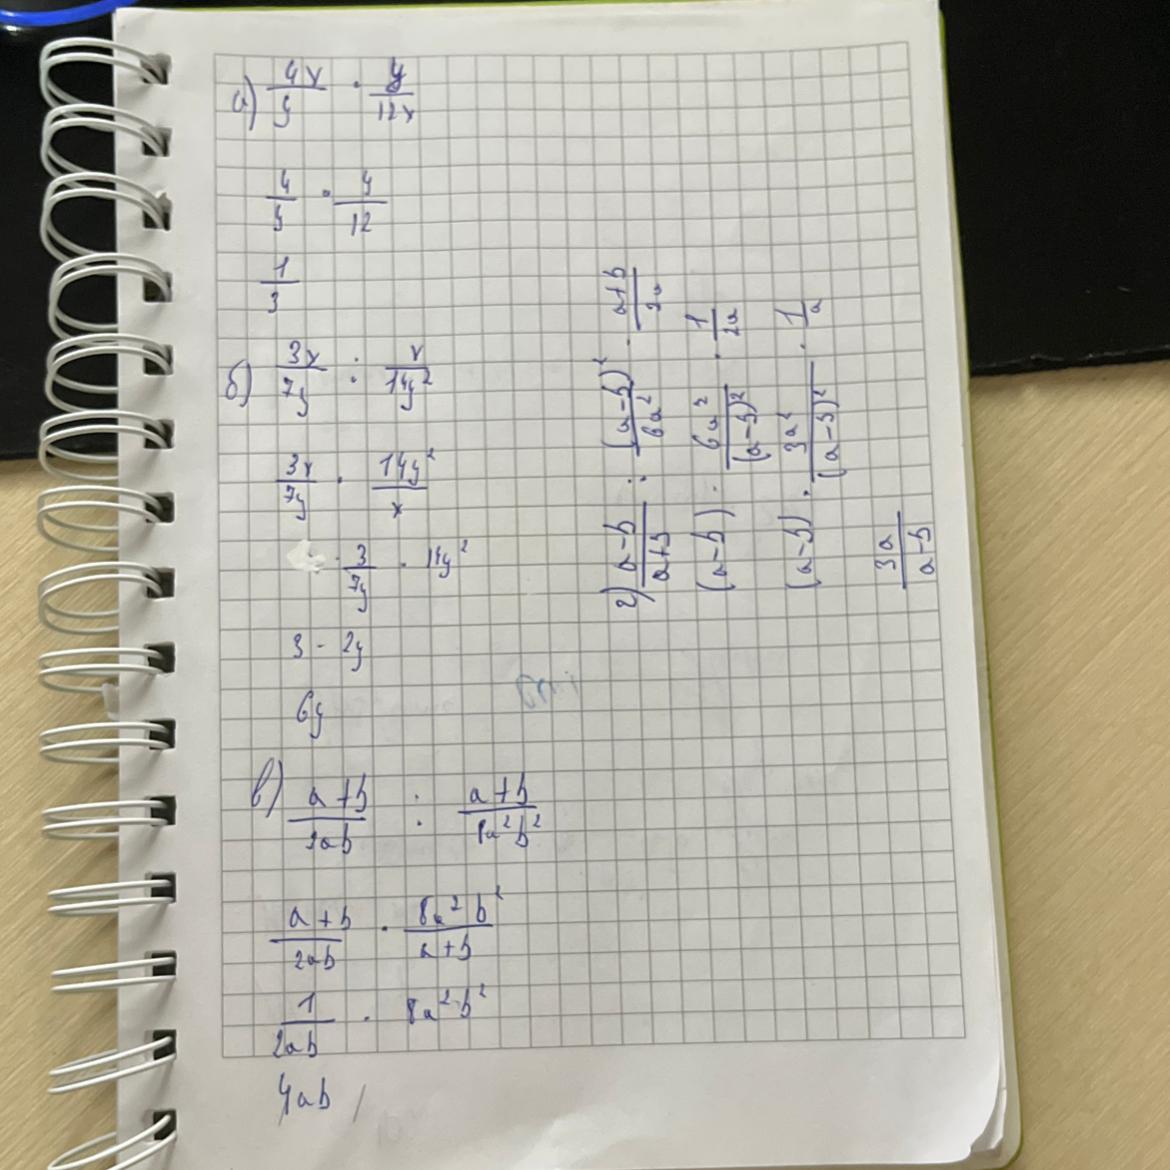 а) 4x/y · y/12x
4/y · y/12
1/3
б) 3x/7y : x/14y²
3x/7y · 14y²/x
· 3/7y · 14y²
3 - 2y
6y
в) a+b/2ab : a+b/8a²b²
a+b/2ab · 8a²b²/a+b
1/2ab · 8a²b²
4ab
г) a-b/a+b : (a-b)²/6a² · a+b/2a
(a-b) · 6a²/(a-b)² · 1/2a
(a-b) · 3a²/(a-b)² · 1/a
3a/a-b